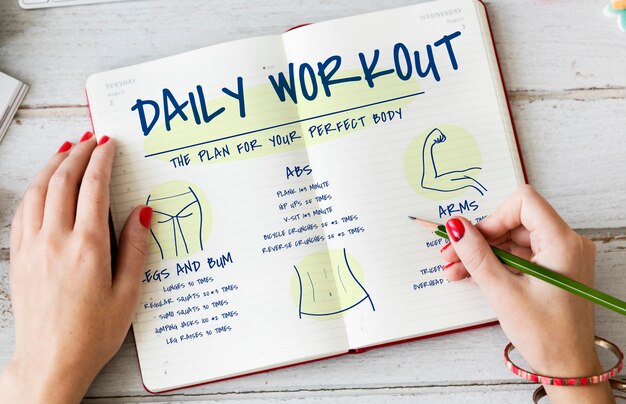 TUESDAY
August
2
WEDNESDAY
August
3
DAILY WORKOUT
THE PLAN FOR YOUR PERFECT BODY
ABS
PLANK 1*3 MINUTE
HIP UPS 25 TIMES
V-SIT 1*3 MINUTE
BICYCLE CRUNCHES 25 TIMES
REVERSE CRUNCHES 25 TIMES
ARMS
BICEPS
TRICEPS
OVERHEAD
LEGS AND BUM
LUNGES 30 TIMES
REGULAR SQUATS 20*3 TIMES
SUMO SQUATS 30 TIMES
JUMPING JACKS 100 TIMES
LEG RAISES 30 TIMES